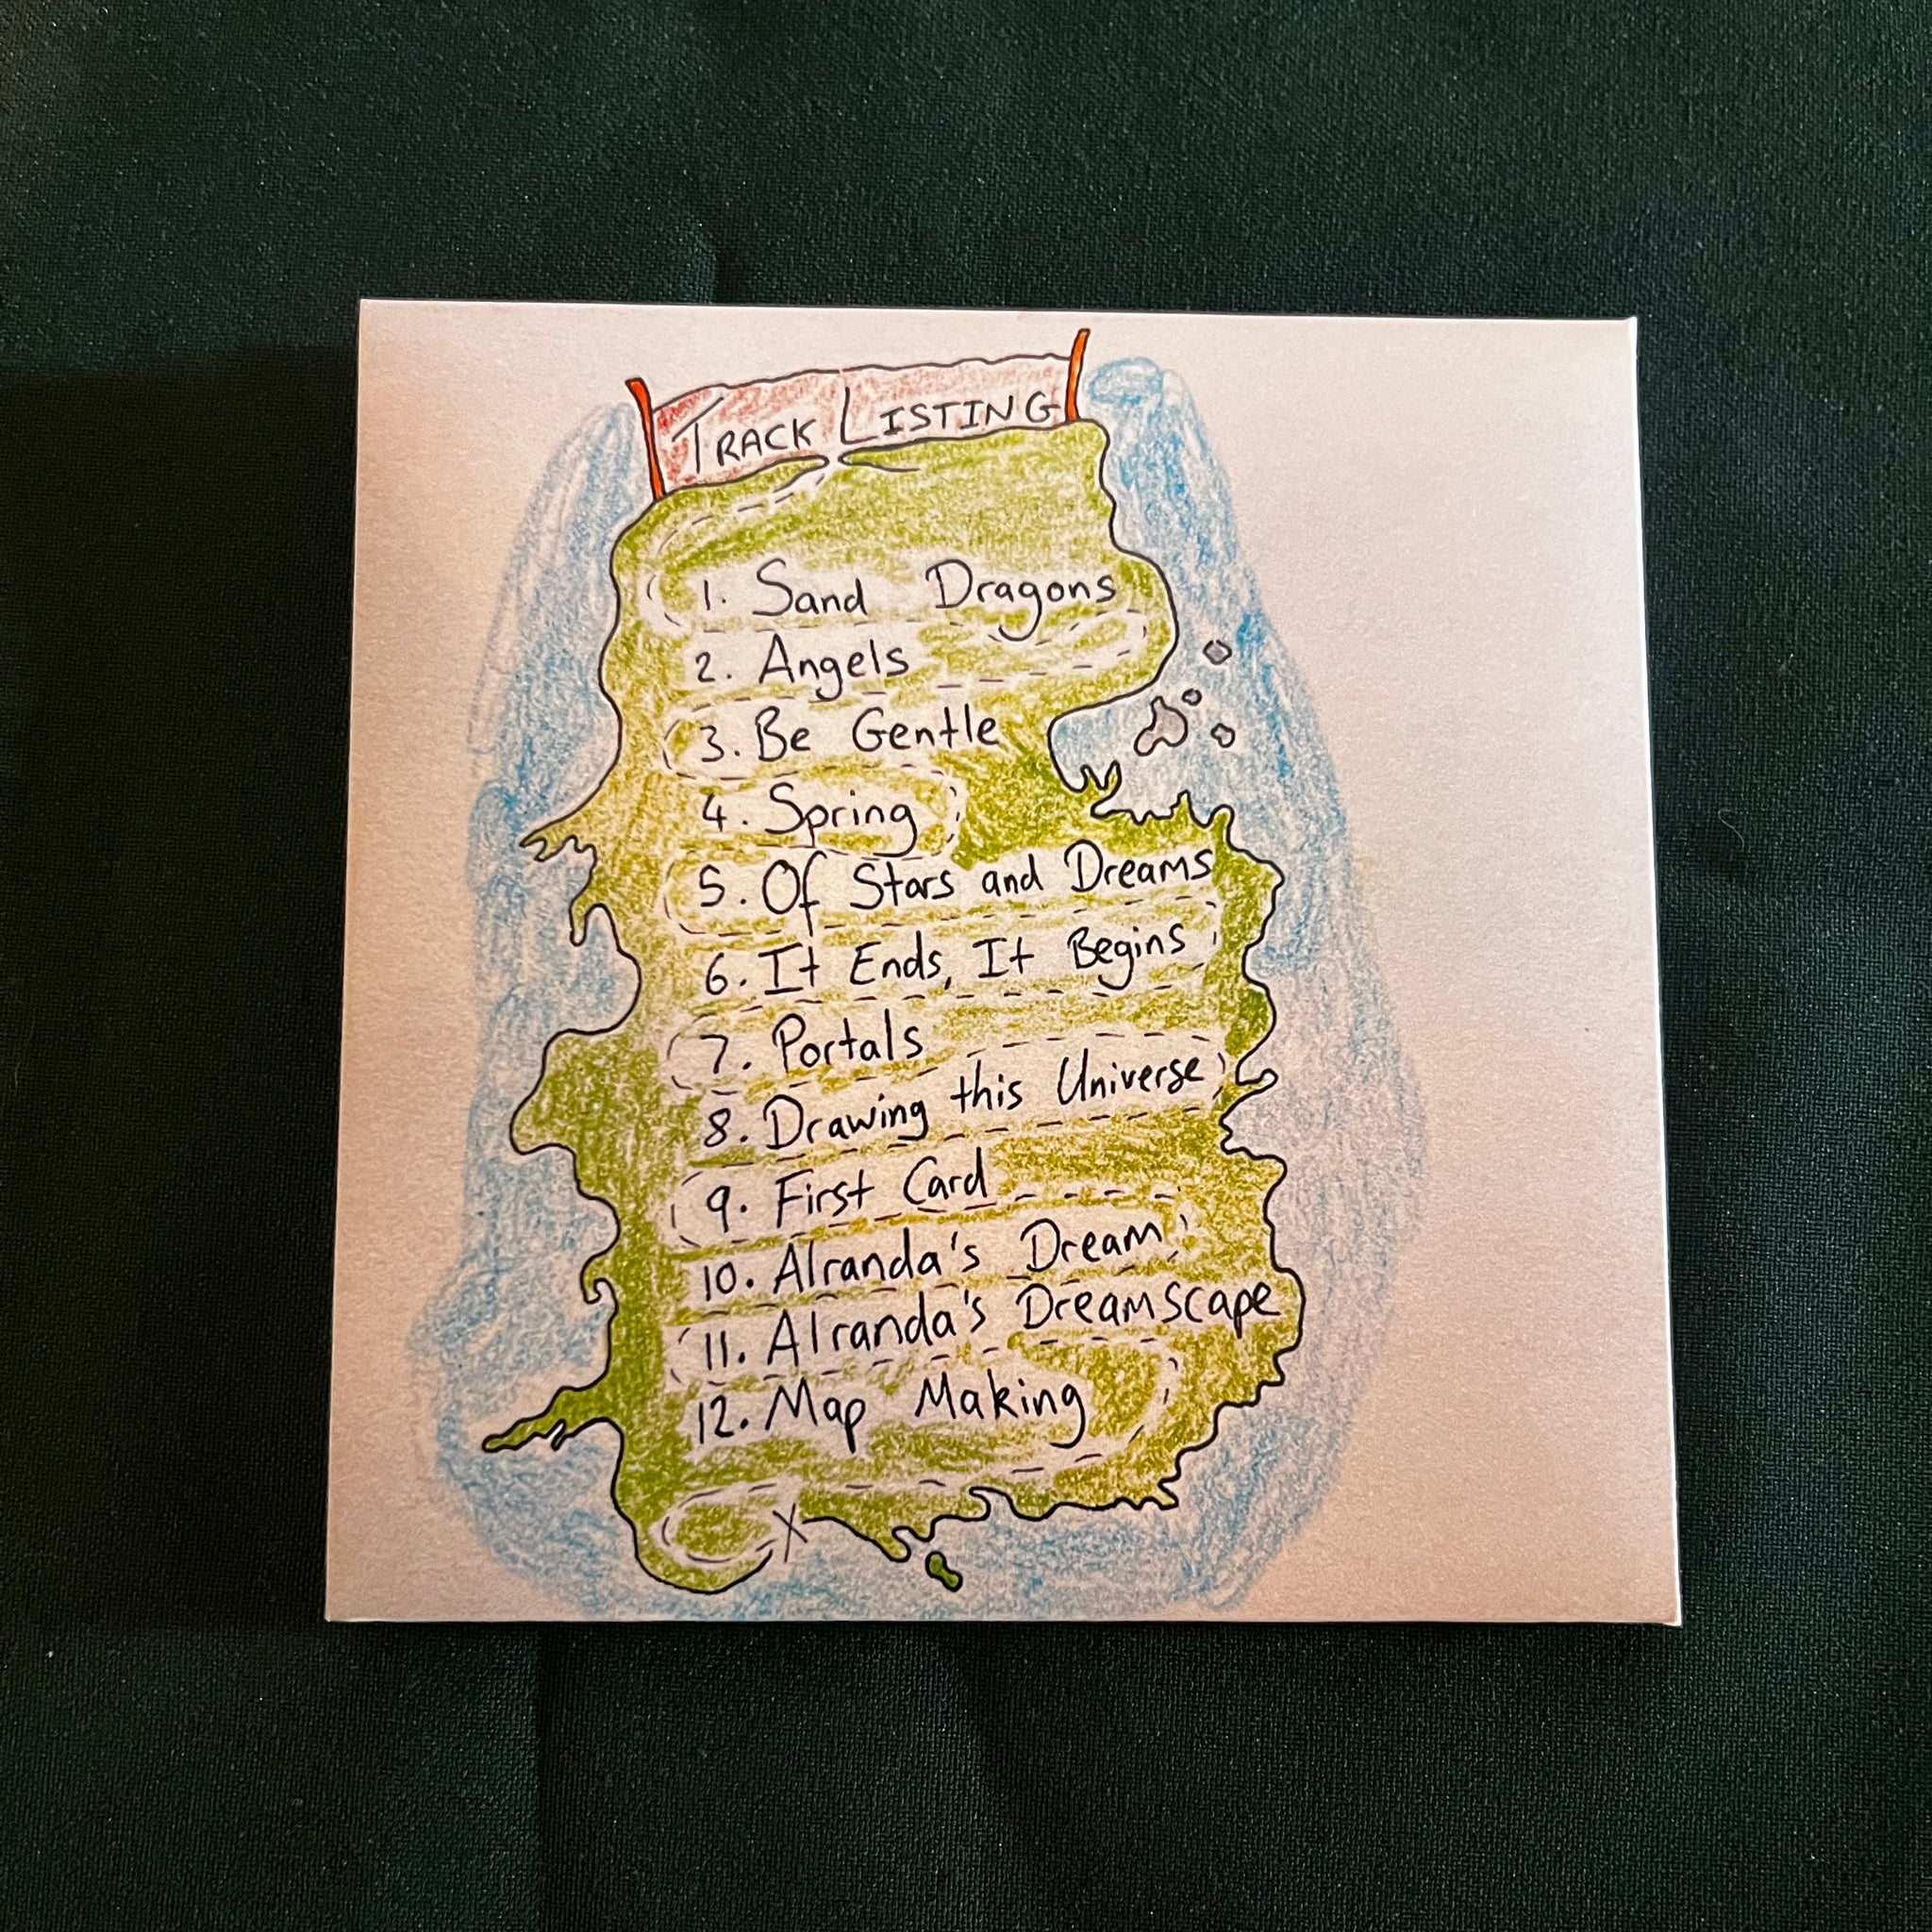 TRACK LISTING
1. Sand Dragons
2. Angels
3. Be Gentle
4. Spring
5. Of Stars and Dreams
6. It Ends, It Begins
7. Portals
8. Drawing this Universe
9. First Card
10. Alranda's Dream
11. Alranda's Dreamscape
12. Map Making
X